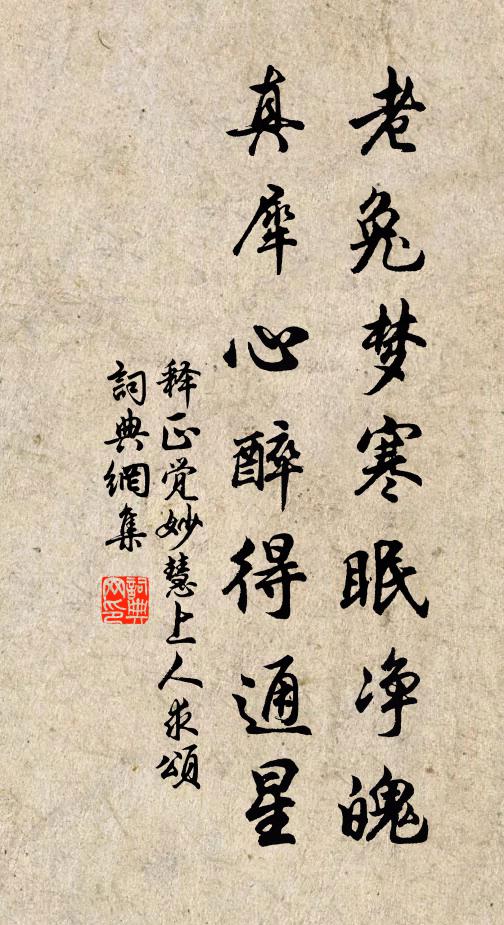 老兔梦寒眠净魄
真犀心醉得通星
释正觉妙慧上人求颂
词典網集
詞典